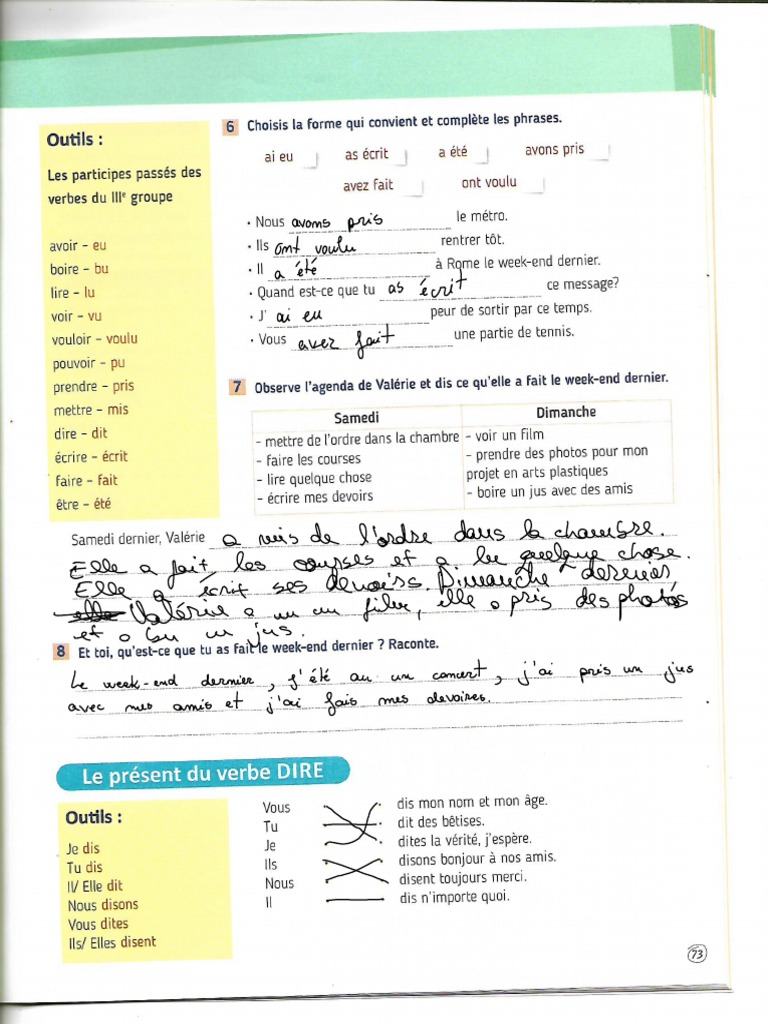 Outils :
Les participes passés des
verbes du IIIe groupe
avoir – eu
boire – bu
lire – lu
voir – vu
vouloir – voulu
pouvoir – pu
prendre – pris
mettre – mis
dire – dit
écrire – écrit
faire – fait
être – été
6 Choisis la forme qui convient et complète les phrases.
ai eu as écrit a été avons pris
avez fait ont voulu
• Nous avons pris le métro.
• Ils ont voulu rentrer tôt.
• Il a été à Rome le week-end dernier.
• Quand est-ce que tu as écrit ce message?
• J' ai eu peur de sortir par ce temps.
• Vous avez fait une partie de tennis.
7 Observe l'agenda de Valérie et dis ce qu'elle a fait le week-end dernier.
Samedi
- mettre de l'ordre dans la chambre
- faire les courses
- lire quelque chose
- écrire mes devoirs
Dimanche
- voir un film
- prendre des photos pour mon
projet en arts plastiques
- boire un jus avec des amis
Samedi dernier, Valérie a mis de l'ordre dans la chambre.
Elle a fait les courses et a lu quelque chose.
Elle a écrit ses devoirs. Dimanche dernier
Valérie a vu un film, elle a pris des photos
et a bu un jus.
8 Et toi, qu'est-ce que tu as fait le week-end dernier ? Raconte.
Le week-end dernier, j'été au un concert, j'ai pris un jus
avec mes amis et j'ai fais mes devoires.
Le présent du verbe DIRE
Outils :
Je dis
Tu dis
Il/ Elle dit
Nous disons
Vous dites
Ils/ Elles disent
Vous
Tu
Je
Ils
Nous
Il
dis mon nom et mon âge.
dit des bêtises.
dites la vérité, j'espère.
disons bonjour à nos amis.
disent toujours merci.
dis n'importe quoi.
73